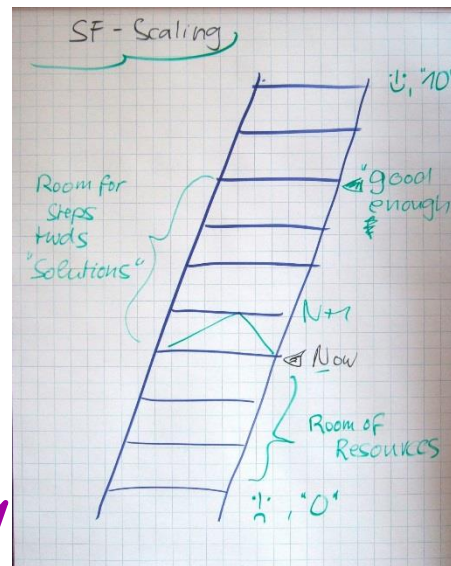 SF-Scaling
:), "10"
"good
enough
Room for
Steps
twds
"Solutions"
N+1
Now
Room of
Resources
:(, "0"